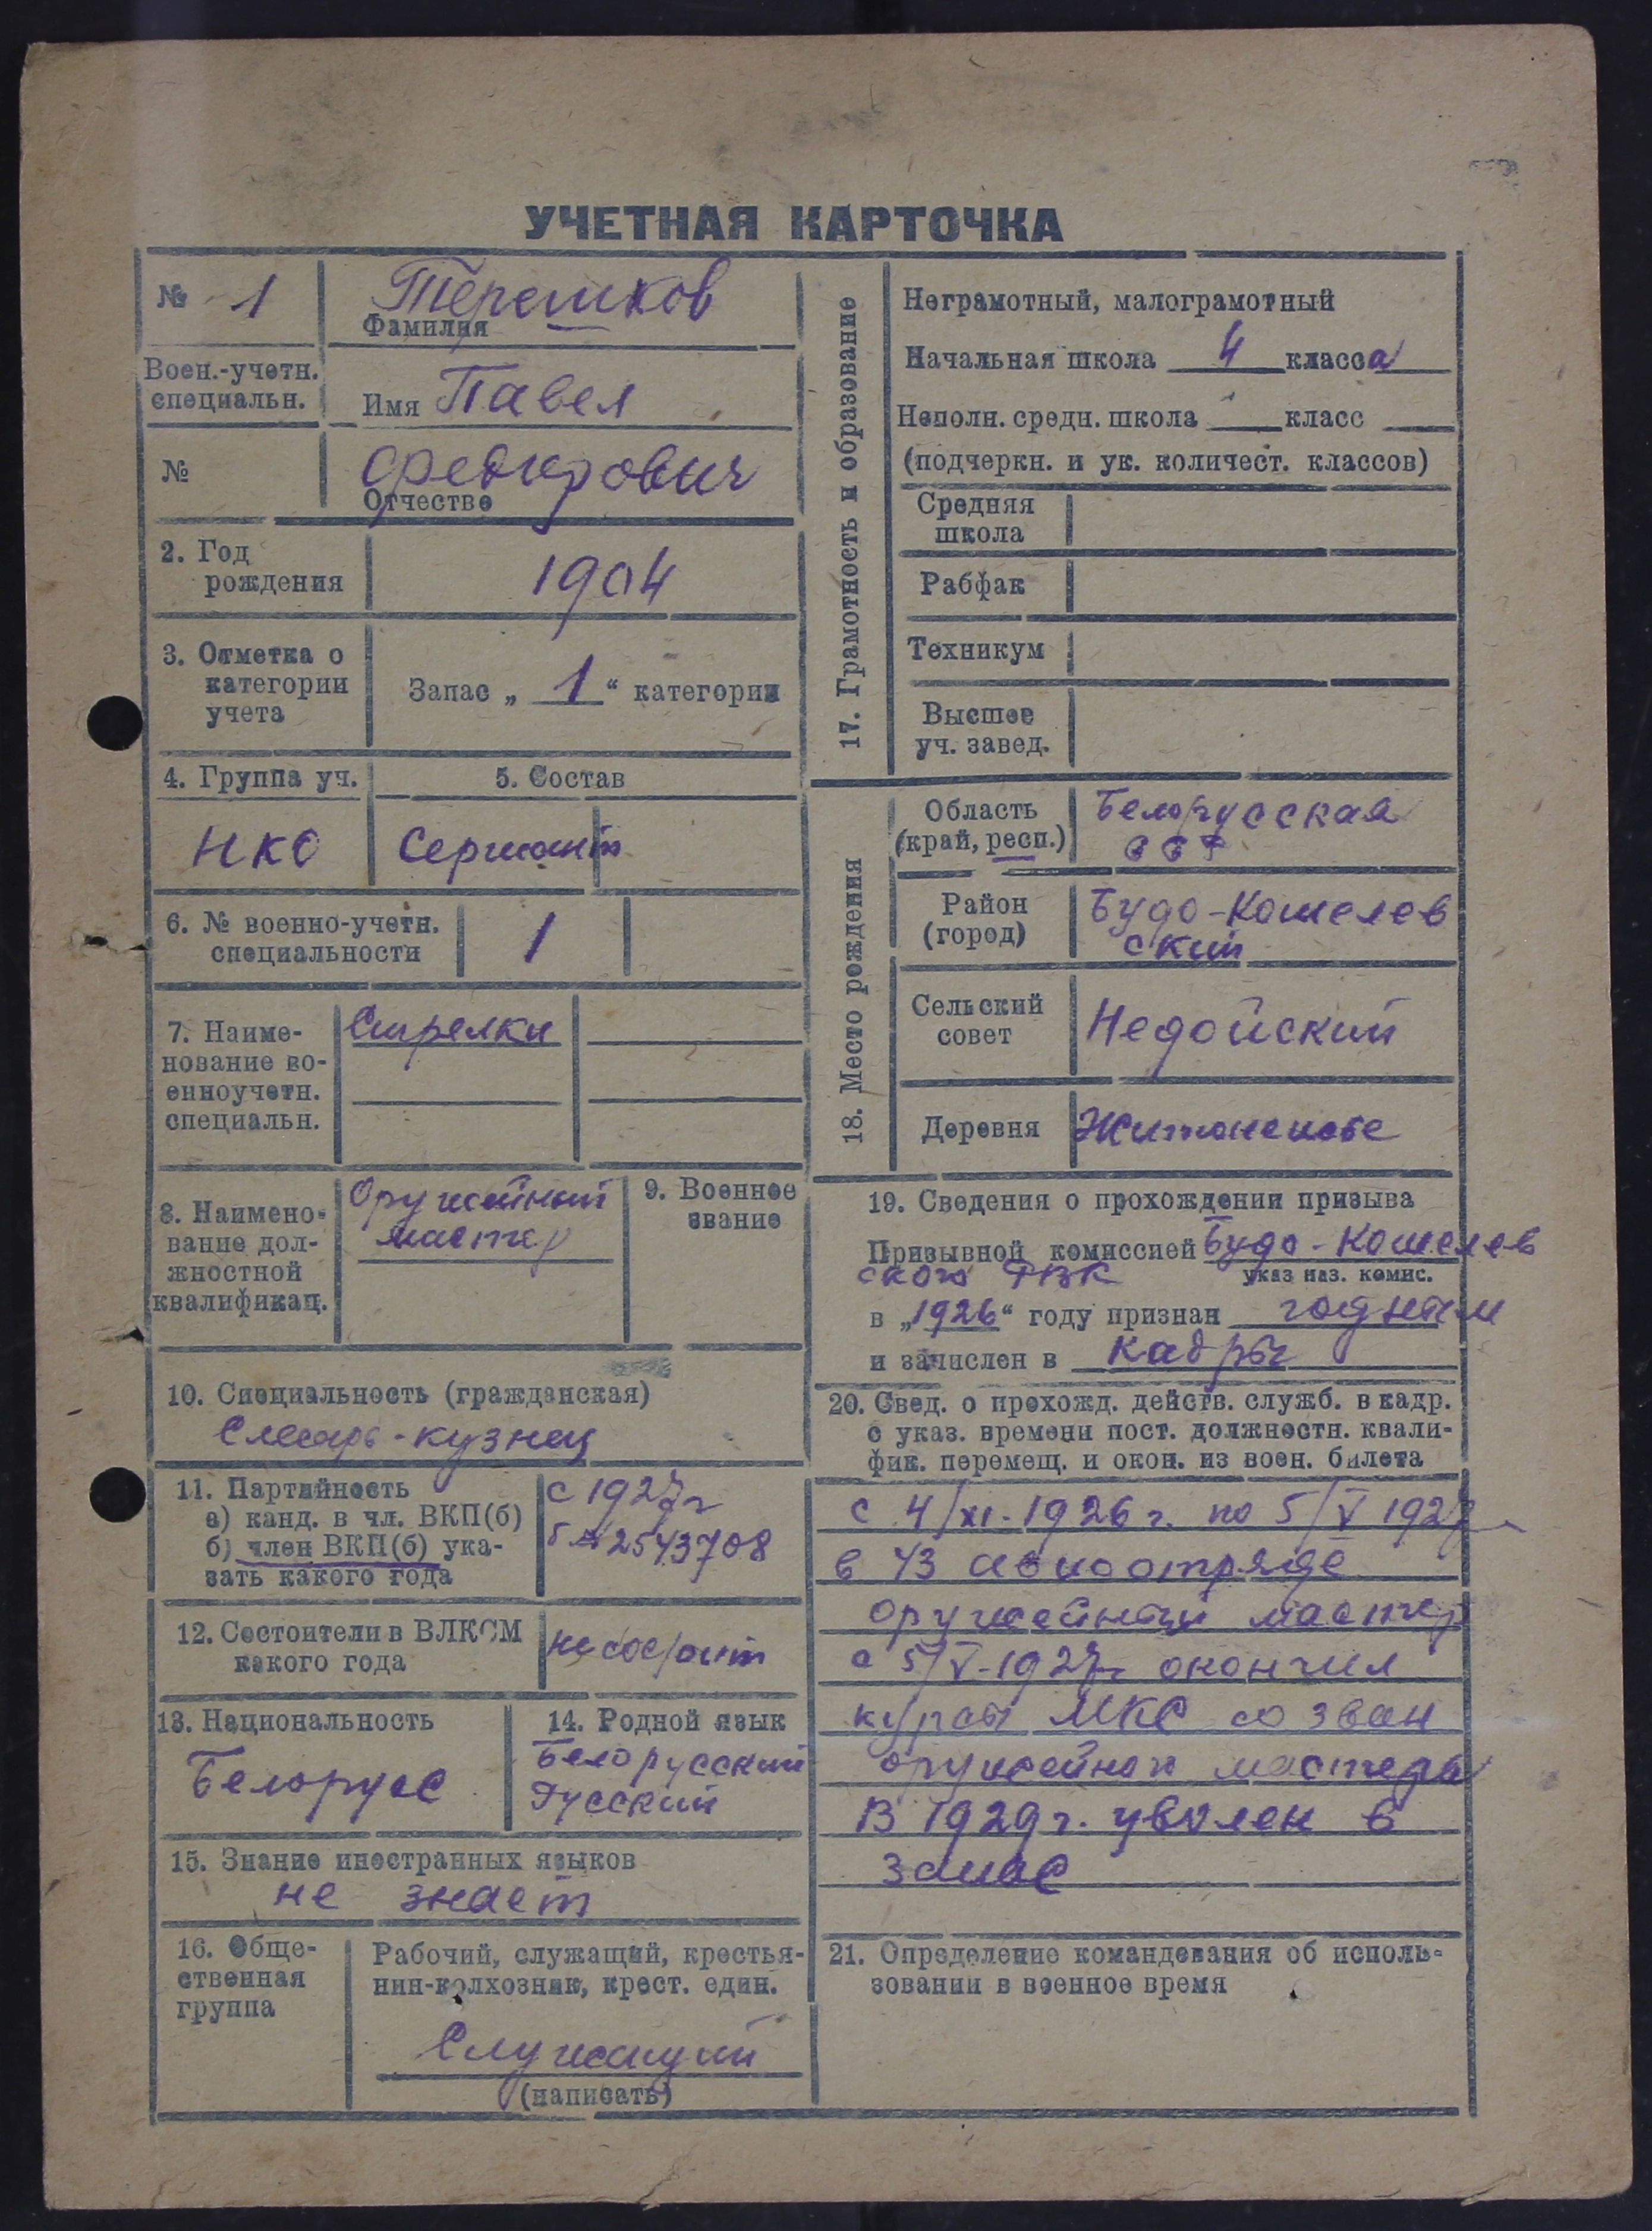 УЧЕТНАЯ КАРТОЧКА
№ 1
Терешков
Фамилия
Воен.-учетн.
специальн.
Имя Павел
№
Федорович
Отчество
2. Год
рождения
1904
3. Отметка о
категории
учета
Запас „ 1 “ категории
4. Группа уч.
5. Состав
НКО
Сержант
6. № военно-учетн.
специальности
1
7. Наиме-
нование во-
енноучетн.
специальн.
Стрелки
8. Наимено-
вание дол-
жностной
квалификац.
Оружейный
мастер
9. Военное
звание
10. Специальность (гражданская)
Слесарь-кузнец
11. Партийность
а) канд. в чл. ВКП(б)
б) член ВКП(б) ука-
зать какого года
с 1927г
№ 2543708
12. Состоител и в ВЛКСМ
какого года
не состоит
13. Национальность
Белорус
14. Родной язык
Белорусский
Русский
15. Знание иностранных языков
не знает
16. Обще-
ственная
группа
Рабочий, служащий, крестья-
нин-колхозник, крест. един.
Служащий
(написать)
17. Грамотность и образование
Неграмотный, малограмотный
Начальная школа 4 класса
Неполн. средн. школа класс
(подчеркн. и ук. количест. классов)
Средняя
школа
Рабфак
Техникум
Высшее
уч. завед.
18. Место рождения
Область
(край, респ.)
Белорусская
ССР
Район
(город)
Будо-Кошелев
ский
Сельский
совет
Недойский
Деревня
19. Сведения о прохождении призыва
Призывной комиссией Будо-Кошелев
ского РВК
указ наз. комис.
в „1926“ году признан годным
и зачислен в кадры
20. Свед. о прохожд. действ. служб. в кадр.
с указ. времени пост. должностн. квали-
фик. перемещ. и окон. из воен. билета
с 4/XI-1926 г. по 5/V 1927
в 43 авиоотряде
оружейный мастер
с 5/V-1927г окончил
курсы МКС со зван
оружейного мастера
В 1929 г. уволен в
запас
21. Определение командования об исполь-
зовании в военное время